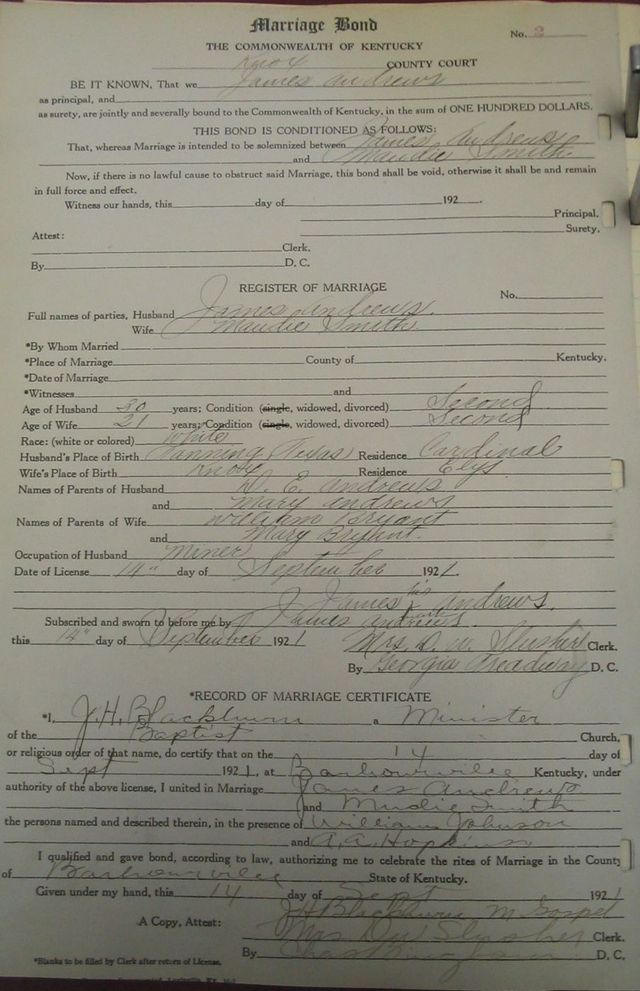 Marriage Bond
No. 2
THE COMMONWEALTH OF KENTUCKY
Knox COUNTY COURT
BE IT KNOWN, That we James Andrews
as principal, and
as surety, are jointly and severally bound to the Commonwealth of Kentucky, in the sum of ONE HUNDRED DOLLARS.
THIS BOND IS CONDITIONED AS FOLLOWS:
That, whereas Marriage is intended to be solemnized between James Andrews
and Maudie Smith
Now, if there is no lawful cause to obstruct said Marriage, this bond shall be void, otherwise it shall be and remain
in full force and effect.
Witness our hands, this day of 192 .
Principal.
Surety.
Attest:
Clerk.
By D. C.
REGISTER OF MARRIAGE
No.
Full names of parties, Husband James Andrews.
Wife Maudie Smith
*By Whom Married
*Place of Marriage County of Kentucky.
*Date of Marriage
*Witnesses and
Age of Husband 30 years; Condition (single, widowed, divorced) Second
Age of Wife 21 years; Condition (single, widowed, divorced) Second
Race: (white or colored) White
Husband's Place of Birth Fanning Texas Residence Cardinal
Wife's Place of Birth Knox Residence Elys
Names of Parents of Husband E. Andrews
and Mary Andrews
Names of Parents of Wife William Bryant
and Mary Bryant.
Occupation of Husband Miner
Date of License 14" day of September 1921.
James his Andrews.
Subscribed and sworn to before me by James Andrews
this 14" day of September 1921 Mrs. D. W. Slusher Clerk.
By Georgia Treadway D. C.
*RECORD OF MARRIAGE CERTIFICATE
*I, J. H. Blackburn a Minister
of the Baptist Church,
or religious order of that name, do certify that on the 14 day of
Sept 1921, at Barbourville Kentucky, under
authority of the above license, I united in Marriage James Andrews
and Mudie Smith
the persons named and described therein, in the presence of William Johnson
and A. A. Hopkins
I qualified and gave bond, according to law, authorizing me to celebrate the rites of Marriage in the County
of Barbourville State of Kentucky.
Given under my hand, this 14 day of Sept 1921
J H Blackburn M Gospel
A Copy, Attest: Mrs D W Slusher Clerk.
By D. C.
*Blanks to be filled by Clerk after return of License.